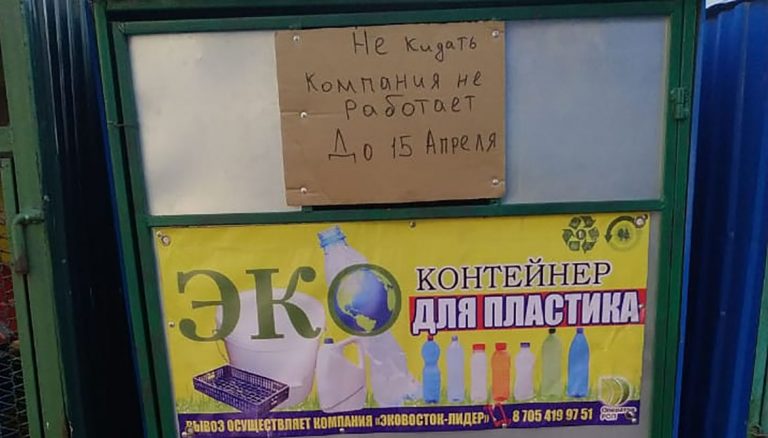 Не кидать
Компания не
работает
До 15 Апреля
ЭКО
КОНТЕЙНЕР
ДЛЯ ПЛАСТИКА
ВЫВОЗ ОСУЩЕСТВЛЯЕТ КОМПАНИЯ «ЭКОВОСТОК-ЛИДЕР» 8 705 419 97 51
Оператор
РОП